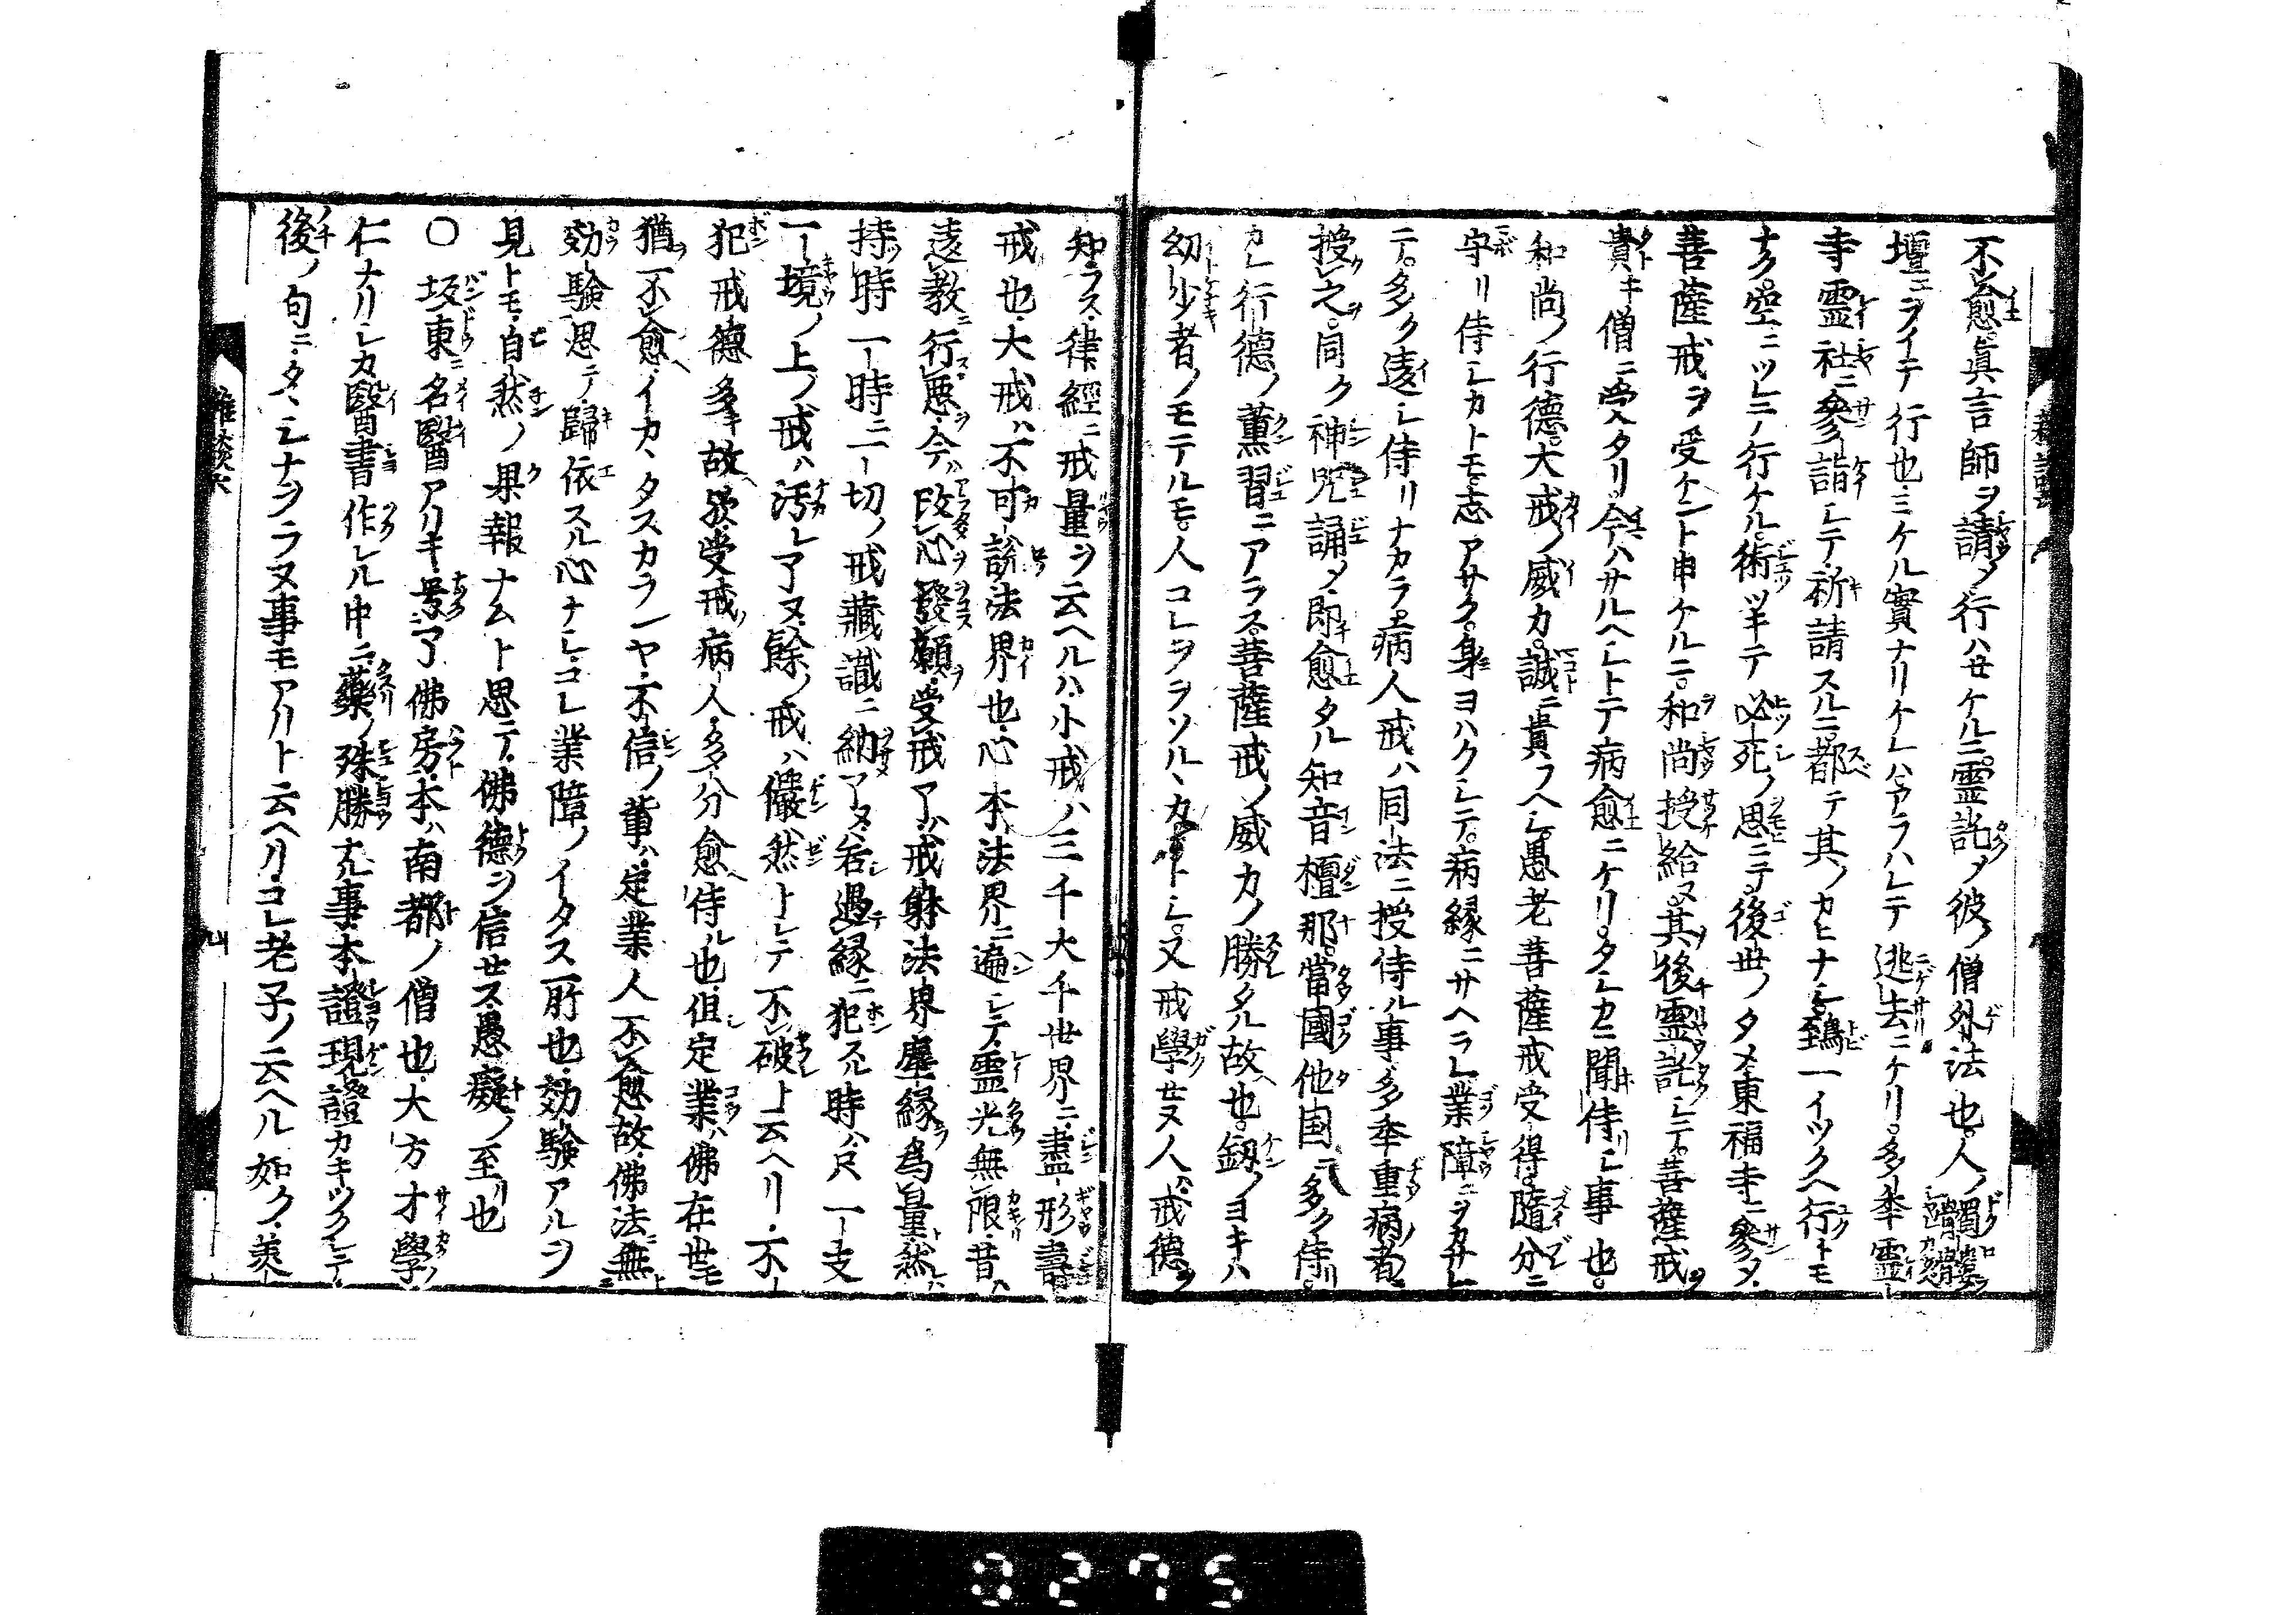 不愈眞言師ヲ請メ行ハせケルニ。霊託メ彼ノ僧外法也。人ノ髑髏ヲ
壇ニヲイテ行也ミケル實ナリケレハアラハレテ逃去ニケリ。多年霊
寺霊社ニ參詣シテ祈請スルニ都テ其ノカヒナシ鵄一イツクヘ行トモ
ナク空ニツレニノ行ケル。術ツキテ必死ノ思ニテ後世ノタメ東福寺ニ參メ
菩薩戒ヲ受ケント申ケルニ。和尚授給ヌ其後霊託シテ。菩薩戒ヲ
貴キ僧ニ受ヘタリ今ハサルヘシトテ病愈ニケリ。タシカニ聞侍リシ事也。
和尚ノ行德。大戒ノ威カ。誠ニ貴フヘシ。愚老菩薩戒受得。隨分ニ
守リ侍シカトモ。志アサク。身ヨハクシテ。病縁ニサヘラレ業障ニヲカサレ
テ。多ク違シ侍リナカラ。病人戒ハ同法ニ授侍ル事多年重病者ニ
授之。同ク神咒誦メ即愈タル知音檀那。當國他国ニ多ク侍リ。
カレ行德ノ薫習ニアラス。菩薩戒ノ威カノ勝タル故也。釼ノヨキハ
幼少者ノモテルモ。人コレヲヲソル、カコトシ。又戒學せヌ人ハ戒德ヲ
知ラス律經ニ戒量ヲ云ヘルハ小戒ハ三千大千世界ニ盡形壽
戒也大戒ハ不可說法界也心本法界ニ遍シテ霊光無限昔ハ
違教行悪今ハ改心發願受戒了ハ戒躰法界塵縁爲量然ハ
持時一時ニ一切ノ戒藏識ニ納了ヌ若遇縁ニ犯スル時ハ只一支
一境ノ上ノ戒ハ汚レ了ヌ餘ノ戒ハ儼然トシテ不破ト云ヘリ不
犯戒德多キ故受戒ノ病人多分愈侍ル也但定業ハ佛在世モ
猶不愈イカヽタスカランヤ不信ノ輩ハ定業人不愈故佛法無ニ
効驗思テ歸依スル心ナシコレ業障ノイタス所也効驗アルヲ
見トモ自然ノ果報ナムト思テ佛德ヲ信せス愚癡ノ至リ也
〇坂東ニ名醫アリキ号了佛房本ハ南都ノ僧也大方才學ノ
仁ナリシカ醫書作レル中ニ藥ノ殊勝ナル事本證現證カキツクシテ
後ノ句ニタヽシナヲラヌ事モアリト云ヘリコレ老子ノ云ヘル如ク美
雜談六